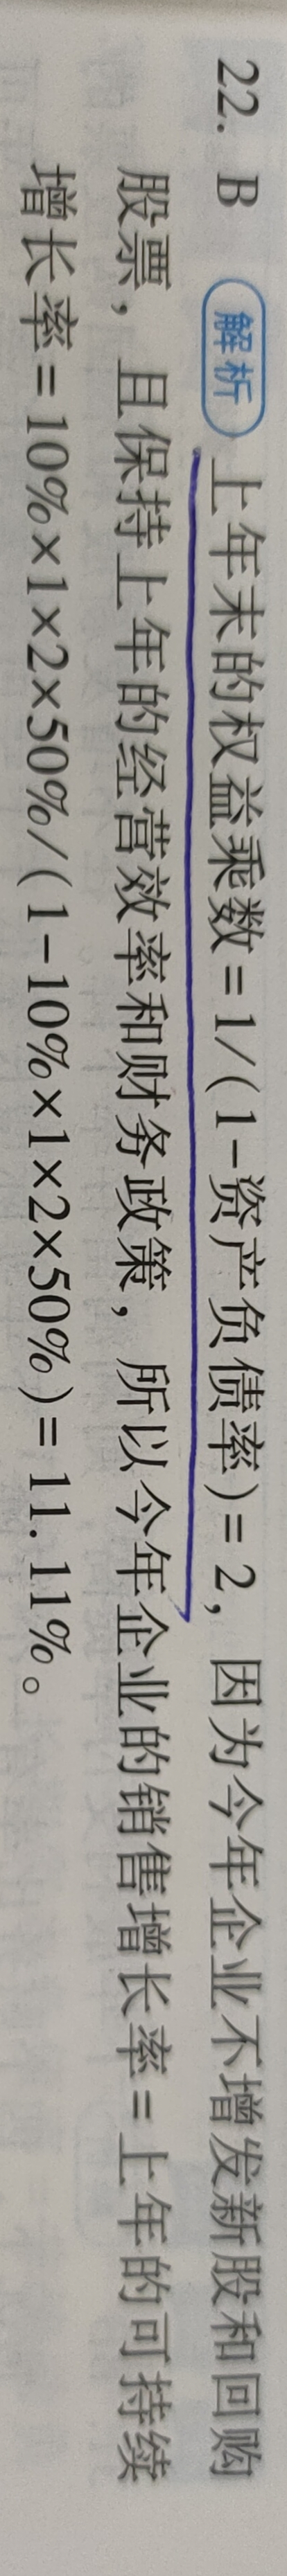 22. B 解析 上年末的权益乘数=1/(1-资产负债率)=2, 因为今年企业不增发新股和回购
股票, 且保持上年的经营效率和财务政策, 所以今年企业的销售增长率=上年的可持续
增长率=10%×1×2×50%/(1-10%×1×2×50%)=11.11%。